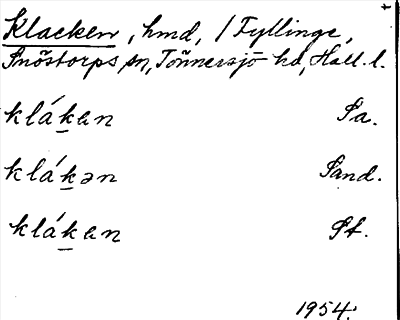 Klacken, hmd, / Fyllinge,
Snöstorps sn, Tönnersjö hd, Hall. l.
klák̲en Sa.
klák̲ən Sand.
klák̲en St.
1954.